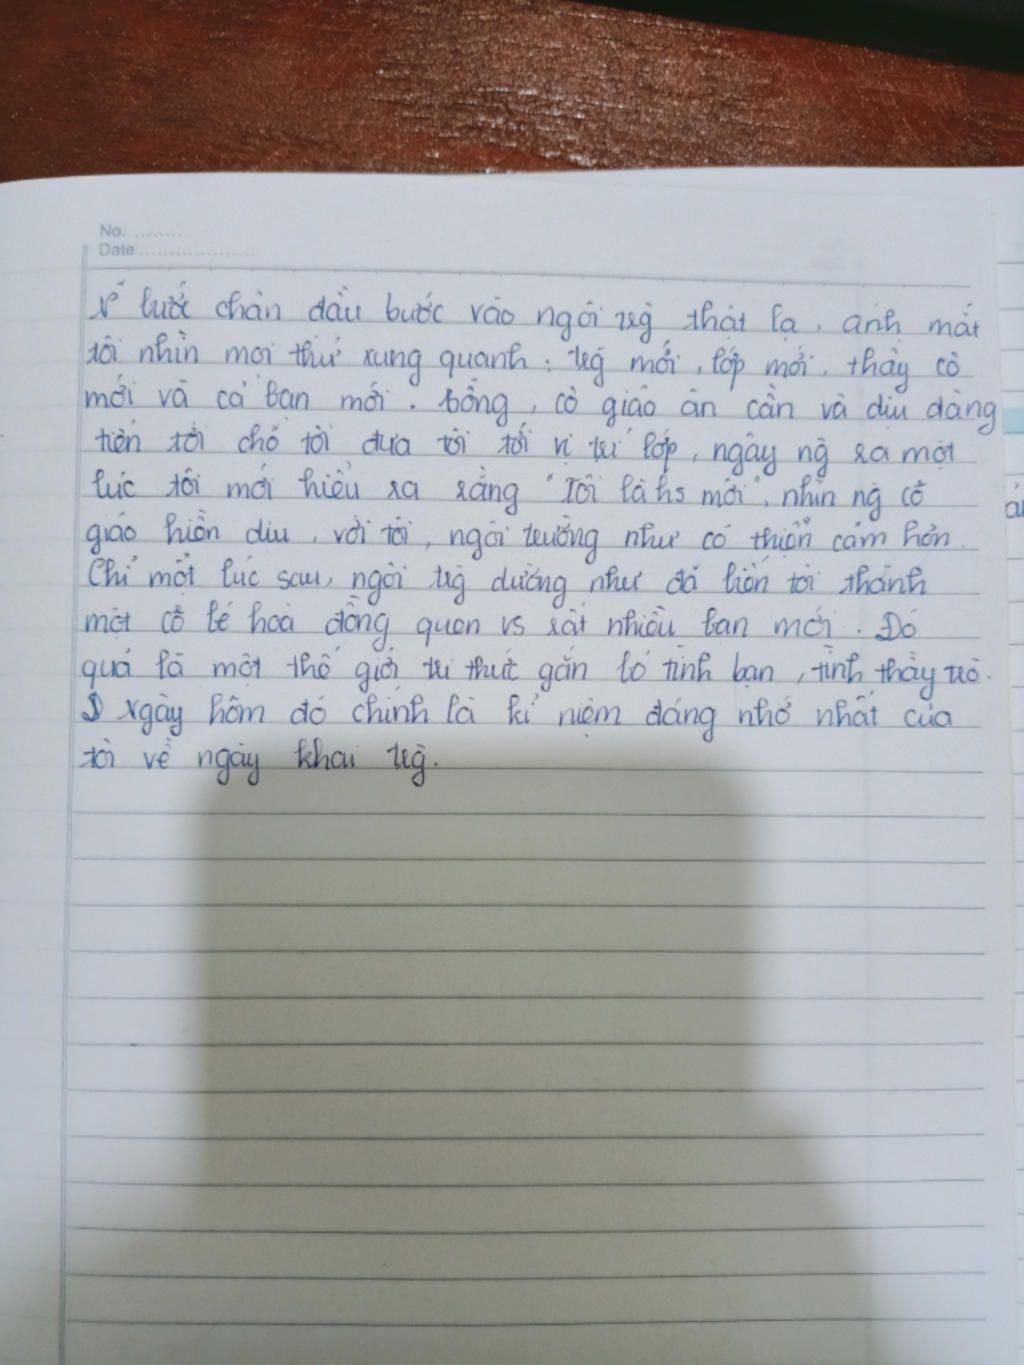 No. ..........
Date ...................
bước chân đầu bước vào ngôi trg thật lạ, ánh mắt
tôi nhìn mọi thứ xung quanh: trg mới, lớp mới, thầy cô
mới và cả bạn mới. Bỗng, cô giáo ân cần và dịu dàng
tiến tới chỗ tôi đưa tôi tới vị trí lớp, ngây ng ra một
lúc tôi mới hiểu ra rằng "Tôi là hs mới", nhìn ng cô
giáo hiền dịu, với tôi, ngôi trường như có thiện cảm hơn.
Chỉ một lúc sau, ngôi trg dường như đã biến tôi thành
một cô bé hoà đồng quen vs rất nhiều bạn mới. Đó
quả là một thế giới tri thức gắn bó tình bạn, tình thầy trò.
Ngày hôm đó chính là kỉ niệm đáng nhớ nhất của
tôi về ngày khai trg.